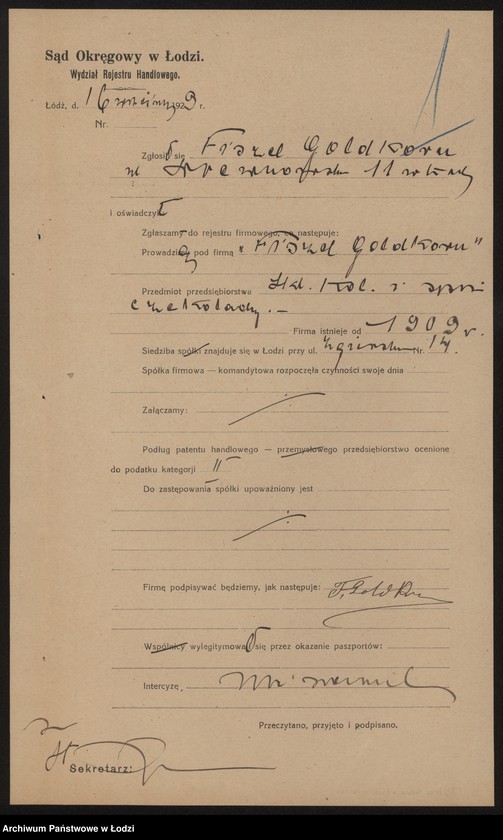 1
Sąd Okręgowy w Łodzi.
Wydział Rejestru Handlowego.
Łódź, d. 16 września 1929 r.
Nr.
Zgłosił się Fiszel Goldkorn
11 w Łodzi
i oświadczył
Zgłaszam do rejestru firmowego, co następuje:
Prowadzę pod firmą "Fiszel Goldkorn"
Przedmiot przedsiębiorstwa Skl. kol. i
czekolady. —
Firma istnieje od 1909 r.
Siedziba spółki znajduje się w Łodzi przy ul. Zgierska Nr. 14.
Spółka firmowa — komandytowa rozpoczęła czynności swoje dnia
Załączamy:
Podług patentu handlowego — przemysłowego przedsiębiorstwo ocenione
do podatku kategorji II
Do zastępowania spółki upoważniony jest
Firmę podpisywać będziemy, jak następuje: F. Goldkorn
Wspólnicy wylegitymował się przez okazanie paszportów:
Intercyzę,
Przeczytano, przyjęto i podpisano.
Sekretarz:
Archiwum Państwowe w Łodzi